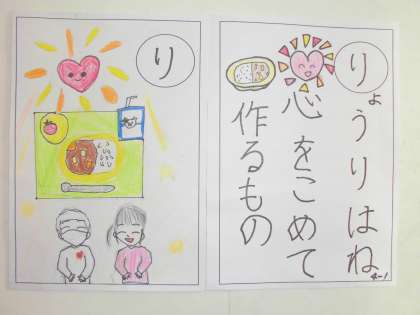 り
りょうりはね
心をこめて
作るもの
4-1